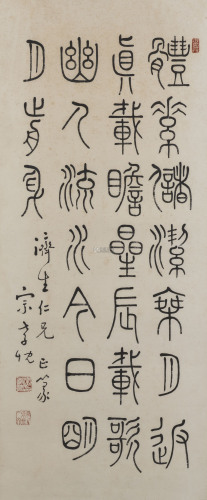 體素儲潔乘月返
眞載瞻星辰載歌
幽人流水今日明
月前身
濟生仁兄 正篆
宗孝忱